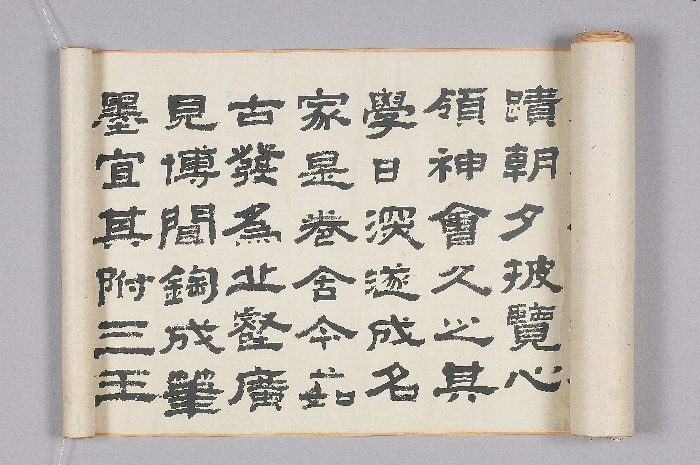 蹟朝夕披覽心
領神會久之其
學日深遂成名
家是卷含今茹
古發為丘壑廣
見博聞鋾成筆
墨宜其附三王